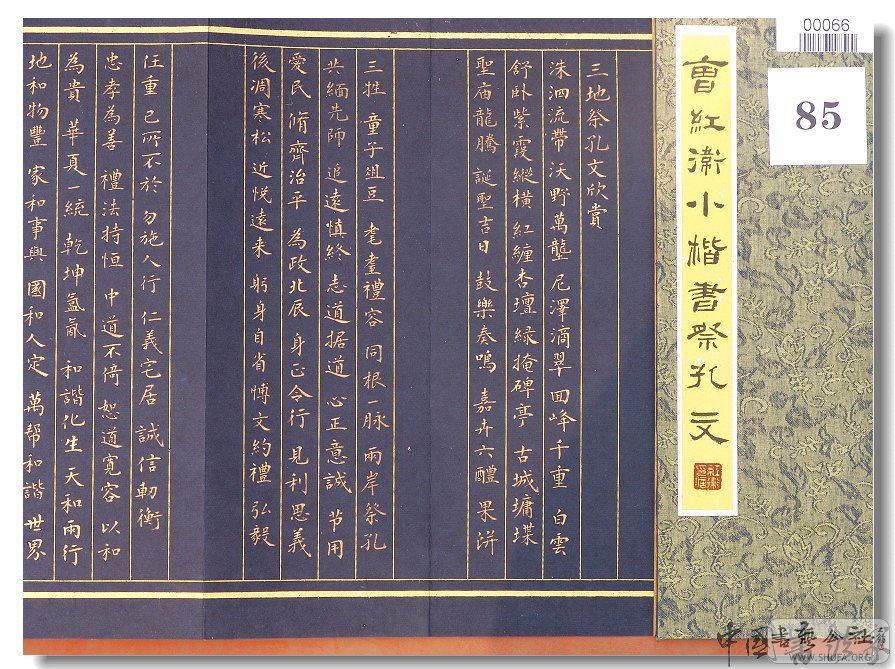 00066
85
曹紅衛小楷書祭孔文
三地祭孔文欣賞
洙泗流帶 沃野萬壟 尼澤滴翠 回峰千重 白雲
舒卧 紫霞縱橫 紅纏杏壇 綠掩碑亭 古城墉堞
聖廟龍騰 誕聖吉日 鼓樂奏鳴 嘉卉六醴 果洴
三牲 童子俎豆 耄耋禮容 同根一脉 兩岸祭孔
共緬先師 追遠慎終 志道据道 心正意誠 节用
愛民 脩齊治平 為政北辰 身正令行 見利思義
後凋寒松 近悦遠来 躬身自省 博文約禮 弘毅
任重 己所不於 勿施人行 仁義宅居 誠信軔衡
忠孝為善 禮法持恒 中道不倚 恕道寬容 以和
為貴 華夏一統 乾坤氤氲 和諧化生 天和雨行
地和物豐 家和事興 國和人定 萬帮和諧 世界
中国書藝公社
WWW.SHUFA.ORG